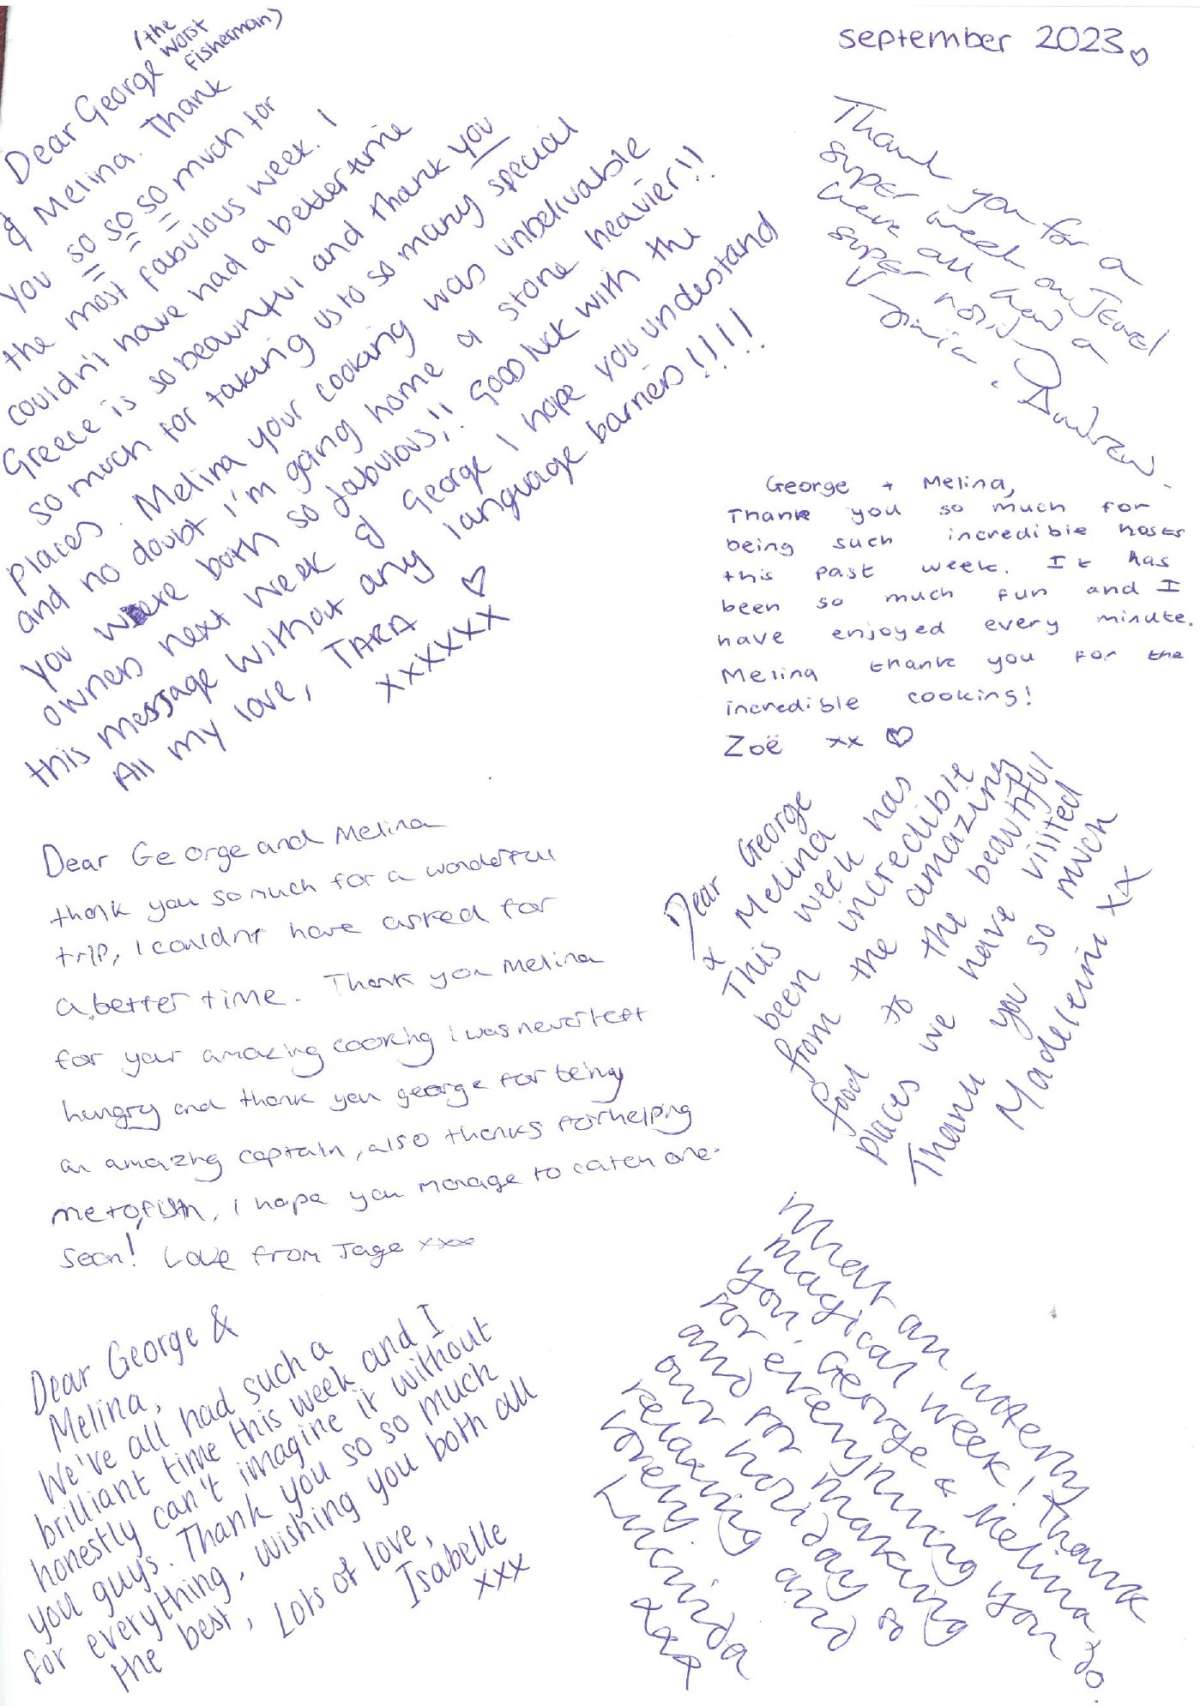 september 2023♡
Dear George (the worst fisherman)
& Melina. Thank
you so so so much for
the most fabulous week. I
couldn't have had a better time
Greece is so beautiful and thank you
so much for taking us to so many special
places. Melina your cooking was unbelivable
and no doubt i'm going home a stone heavier!!
You were both so fabulous!! Good luck with the
owners next week & George I hope you undestand
this message without any language barriers!!!!
All my love, TARA ♡
xxxxxx
Thank you for a
super week on Jewel
were all had a
super
Andrew.
George + Melina,
Thank you so much for
being such incredible hosts
this past week. It has
been so much fun and I
have enjoyed every minute.
Melina thank you for the
incredible cooking!
Zoë xx ♡
Dear George and Melina
thank you so much for a wonderful
trip, i couldn't have asked for
a better time. Thank you Melina
for your amazing cooking i was never left
hungry and thank you george for being
an amazing captain, also thanks for helping
me to fish, i hope you manage to catch one
soon! Love from Jago xxxx
Dear George
x Melina
This week has
been incredible
from the amazing
food to the beautiful
places we have visited
Thank you so much
Madeleine xx
Dear George &
Melina,
We've all had such a
brilliant time this week and I
honestly can't imagine it without
you guys. Thank you so so much
for everything, wishing you both all
the best, Lots of love,
Isabelle
xxx
What an utterly
magical week! Thank
you, George & Melina
for everything you do
and for making
our holiday so
relaxing and
lovely.
Lucinda
xxx